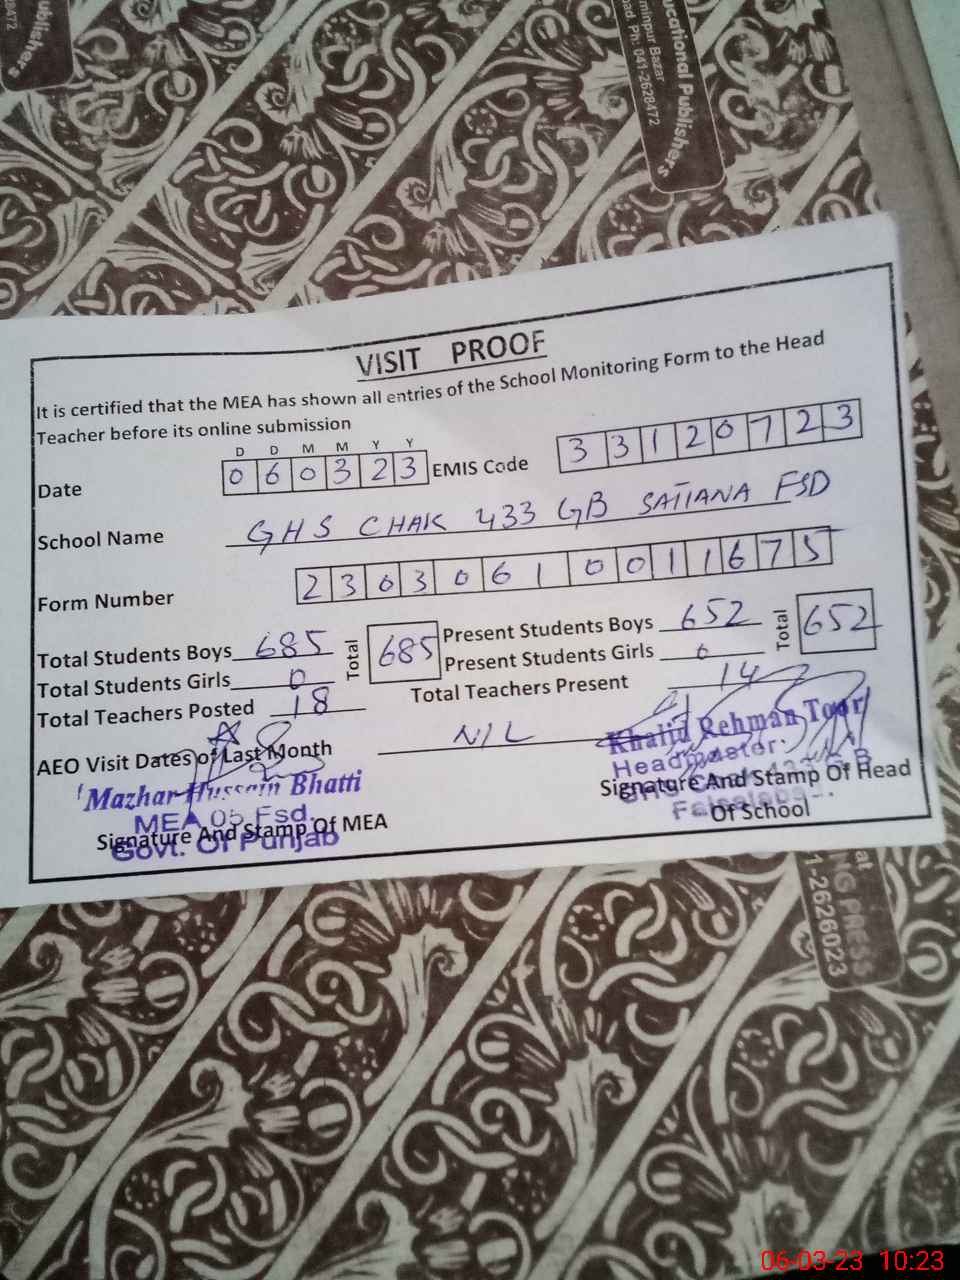 ublishers
8472
ucational Publishers
minpur Bazar
ad Ph: 041-2628472
VISIT PROOF
It is certified that the MEA has shown all entries of the School Monitoring Form to the Head
Teacher before its online submission
D D M M Y Y
Date 0 6 0 3 2 3 EMIS Code 3 3 1 2 0 7 2 3
School Name GHS CHAK 433 GB SATIANA FSD
Form Number 2 3 0 3 0 6 1 0 0 1 1 6 7 5
Total Students Boys 685 Total 685 Present Students Boys 652 Total 652
Total Students Girls 0 Present Students Girls 0
Total Teachers Posted 18 Total Teachers Present 14
AEO Visit Dates of Last Month NIL
Mazhar Hussain Bhatti
MEA 05 Fsd.
Govt. Of Punjab
Signature And Stamp Of MEA
Khalid Rehman Toor
Headmaster
Signature And Stamp Of Head
Of School
NG PRESS
1-2626023
06-03-23 10:23